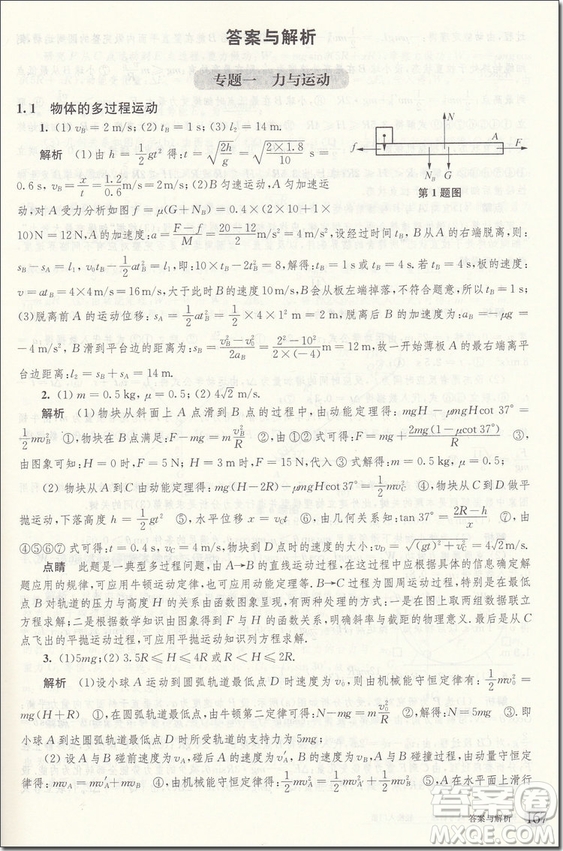 答案与解析
专题一 力与运动
1.1 物体的多过程运动
1. (1) v_B=2 m/s; (2) t=1 s; (3) l₂=14 m.
解析 (1)由 h=1/2 gt² 得:t=√(2h/g)=√(2×1.8/10) s=
0.6 s, v_B=x/t=1.2/0.6 m/s=2 m/s; (2)B 匀速运动,A 匀加速运
f N A F N_B G
第1题图
动,对 A 受力分析如图 f=μ(G+N_B)=0.4×(2×10+1×
10)N=12 N,A 的加速度:a=(F-f)/M=(20-12)/2 m/s²=4 m/s²,设经过时间 t,B 从 A 的右端脱离,则:
s_B-s_A=l₁, v₀t_B-1/2 at_B²=l₁,即:10×t-2t_B²=8,解得:t_B=1 s 或 t_B=4 s. 若 t_B=4 s,则 A 的速度:
v=at_B=4×4 m/s=16 m/s,大于此时 B 的速度 10 m/s,不符合题意,所以 t_B=4 s 不符合题意,舍去;
(3)脱离前 A 的运动位移:s_A=1/2 at_B²=1/2×4×1² m=2 m,B 脱离 A 后的加速度:a_B=-μg=
-4 m/s²,B 滑到平台边的距离为:s_B=(v_B²-v₀²)/2a_B=(2²-10²)/(2×(-4)) m=12 m,故薄板 A 的最右端离平
台距离:l₂=s_A+s_B=14 m.
2. (1) m=0.5 kg; (2) 4√2 m/s.
解析 (1)物块从斜面上 A 点滑到 B 点的过程中,由动能定理得:mgH-μmgHcot 37°=
1/2 mv_B² ①,物块在 B 点满足:F-mg=mv_B²/R ②,由①②式可得:F=mg+2mg(1-μcot 37°)/R H ③,
由图象可知:H=0 时,F=5 N,H=3 m 时,F=10 N,代入③式解得:m=0.5 kg,
(2)物块从 A 到 C 由动能定理得:mg(H-2R)-μmgHcot 37°=1/2 mv_C² ④,物块从 C 到 D 做平
抛运动,下落高度 h=1/2 gt² ⑤,水平位移 x=v_C t ⑥,由几何关系可知:tan 37°=(2R-h)/x ⑦,由
④⑤⑥⑦式可得:t=0.4 s, v_C=4 m/s,物块到 D 点时的速度大小:v_D=√((gt)²+v_C²)=4√2 m/s.
点睛 此题是一典型多过程问题,由 A→B 的直线运动过程,在过程中应根据具体的信息确定解
题应用的规律,可应用牛顿运动定律,也可应用动能定理等;由 B→C 圆周运动过程:一是由圆周最低
点 B 对轨道的压力与高度 H 图象关系呈现信息,此问由图象给出的两点找出两组数据联立
方程求解;二是根据数学知识由图象得到 F 与 H 的函数关系,明确斜率与截距的意义求解;从 C
点飞出的平抛运动过程,可由平抛运动知识列方程求解.
3. (1)5mg; (2)3.5R≤H≤4R 或 R≤H≤2R.
解析 (1)设小球 A 运动到圆弧轨道最低点 D 时速度为 v₀,则由机械能守恒定律有:1/2 mv₀²=
mg(H+R) ①,在圆弧轨道最低点 D,由牛顿第二定律可得:N-mg=mv₀²/R ②,得:N=5mg ③. 即
小球 A 到达圆弧轨道最低点 D 时所受轨道的支持力为 5mg;
(2)设 A 与 B 碰前速度为 v_A,A 与 B 碰后的速度为 v_A′,B 的速度为 v_B,A 与 B 碰撞由动量守恒
定律得:mv_A=mv_A′+mv_B ④,由机械能守恒定律得:1/2 mv_A²=1/2 mv_A′²+1/2 mv_B² ⑤,A 在水平面上滑行
答案与解析 157
答案圈
MXQE.COM